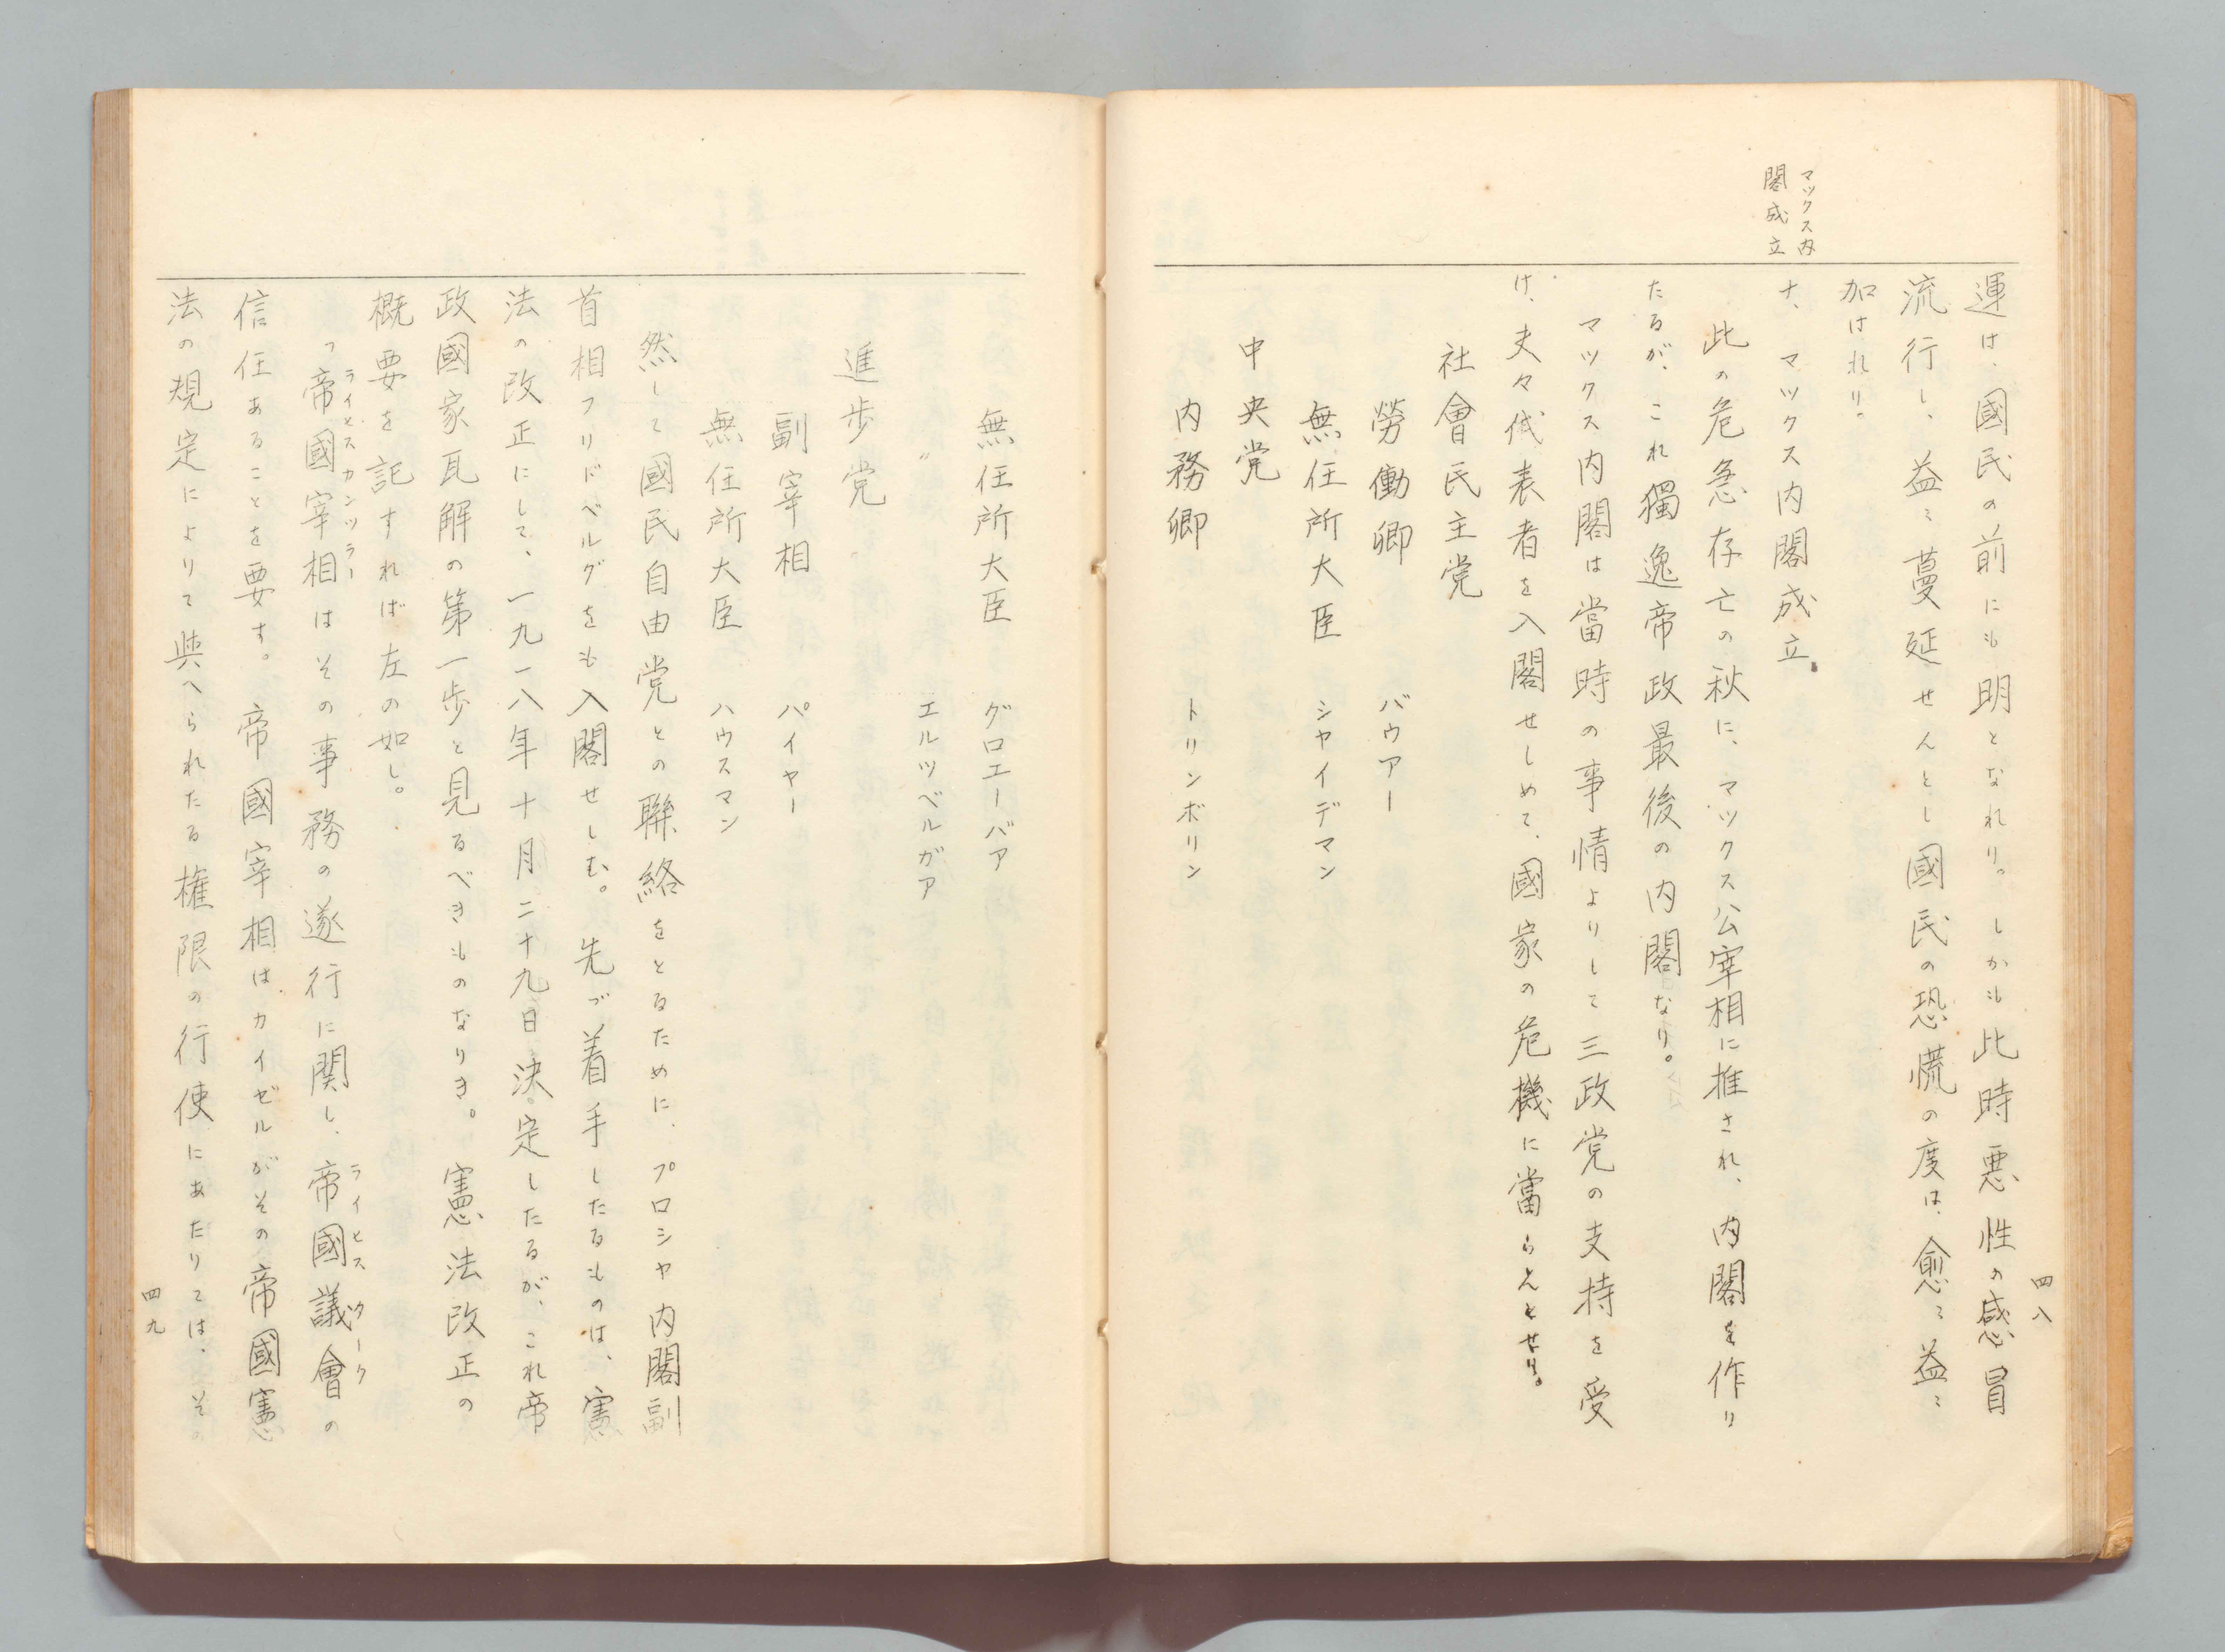 四八
マックス内
閣成立
運は、國民の前にも明となれり。しかも此時悪性の感冒
流行し、益〻蔓延せんとし國民の恐慌の度は、愈〻益〻
加はれり。
ナ、マックス内閣成立
此の危急存亡の秋に、マックス公宰相に推され、内閣を作り
たるが、これ獨逸帝政最後の内閣なり。
マックス内閣は當時の事情よりして三政党の支持を受
け、夫々代表者を入閣せしめて、國家の危機に當らんとせり。
社會民主党
勞働卿 バウアー
無任所大臣 シャイデマン
中央党
内務卿 トリンボリン
無任所大臣 グロエーバア
〃 エルツベルガア
進歩党
副宰相 パイヤー
無任所大臣 ハウスマン
然して國民自由党との聯絡をとるために、プロシャ内閣副
首相フリドベルグをも入閣せしむ。先づ着手したるものは、憲
法の改正にして、一九一八年十月二十九日決定したるが、これ帝
政國家瓦解の第一歩と見るべきものなりき。憲法改正の
概要を記すれば左の如し。
ライヒスカンツラー ライヒスターク
「帝國宰相はその事務の遂行に関し、帝國議會の
信任あることを要す。帝國宰相はカイゼルがその帝國憲
法の規定によりて與へられたる権限の行使にあたりては、その
四九